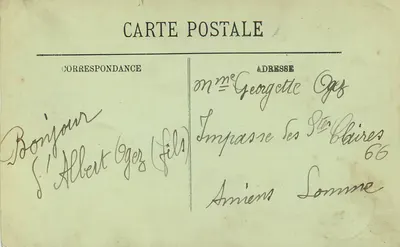 CARTE POSTALE
CORRESPONDANCE
Bonjour
d'Albert Ogez (fils)
ADRESSE
Mme Georgette Ogez
Impasse des Stes Claires
66
Amiens Somme